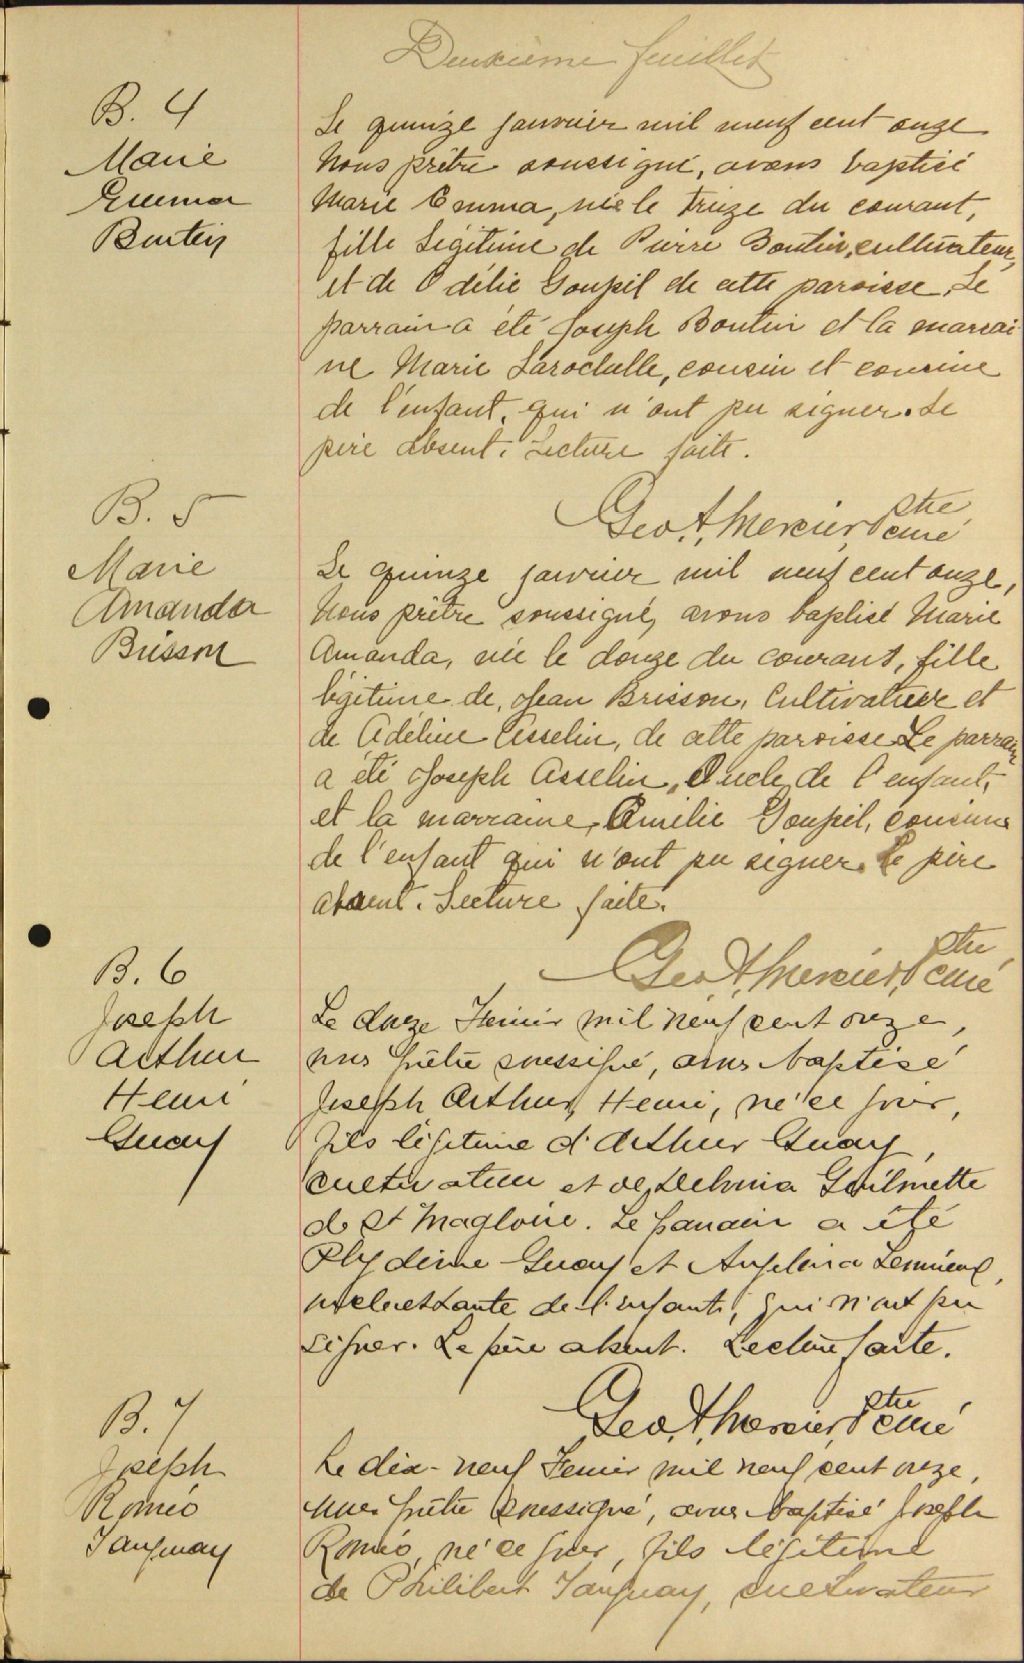 Deuxième feuillet
B. 4
Marie
Emma
Boutin
Le quinze janvier mil neuf cent onze
Nous prêtre soussigné, avons baptisé
Marie Emma, née le treize du courant,
fille légitime de Pierre Boutin, cultivateur,
et de Odélie Goupil de cette paroisse. Le
parrain a été Joseph Boutin et la marrai-
ne Marie Larochelle, cousin et cousine
de l'enfant, qui n'ont pu signer. Le
père absent. Lecture faite.
Geo. A. Mercier Ptre
curé
B. 5
Marie
Amanda
Brisson
Le quinze janvier mil neuf cent onze,
Nous prêtre soussigné, avons baptisé Marie
Amanda, née le douze du courant, fille
légitime de, Jean Brisson, Cultivateur et
de Adéline Asselin, de cette paroisse Le parrain
a été Joseph Asselin, Oncle de l'enfant,
et la marraine, Emilie Goupil, cousine
de l'enfant qui n'ont pu signer. Le père
absent. Lecture faite.
Geo. A. Mercier, Ptre
curé
B. 6
Joseph
Arthur
Henri
Guay
Le douze Février mil neuf cent onze,
nous prêtre soussigné, avons baptisé
Joseph Arthur, Henri, né ce jour,
fils légitime d'Arthur Guay,
cultivateur et de Delvina Guilmette
de St Magloire. Le parrain a été
Guay et Angelina Lemieux,
de l'enfant, qui n'ont pu
signer. Le père absent. Lecture faite.
Geo. A. Mercier, Ptre
curé
B. 7
Joseph
Roméo
Tanguay
Le dix-neuf Février mil neuf cent onze,
nous prêtre soussigné, avons baptisé Joseph
Roméo, né ce jour, fils légitime
de Philibert Tanguay, cultivateur